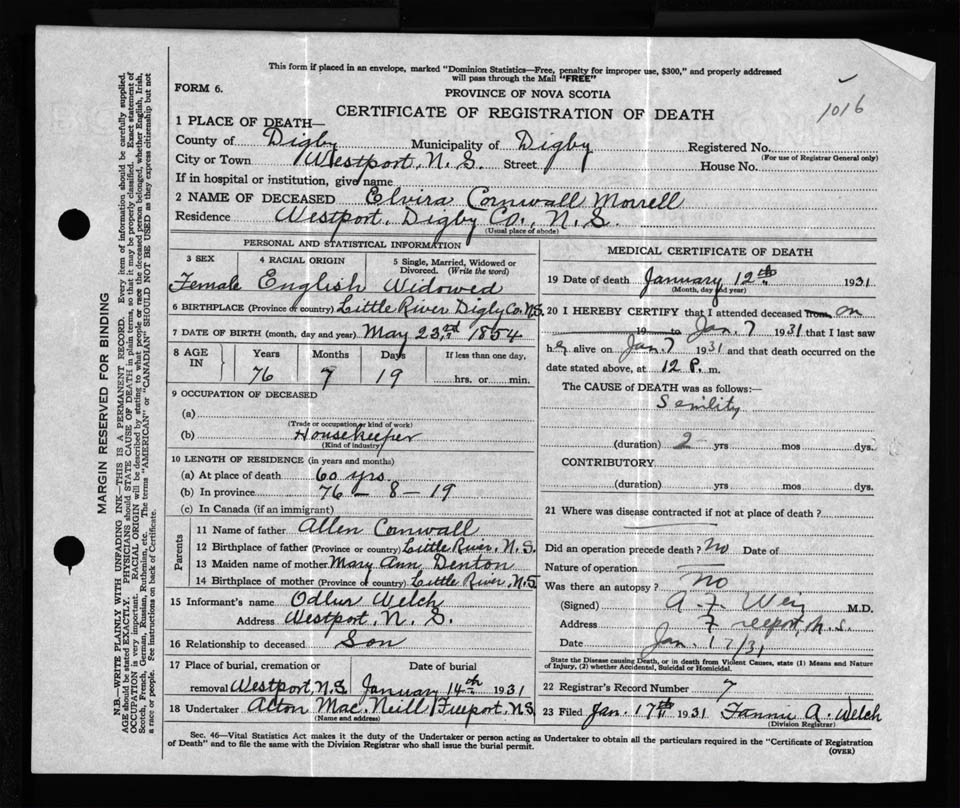 This form if placed in an envelope, marked "Dominion Statistics—Free, penalty for improper use, $300," and properly addressed
will pass through the Mail "FREE"
FORM 6.
PROVINCE OF NOVA SCOTIA
1016
CERTIFICATE OF REGISTRATION OF DEATH
1 PLACE OF DEATH—
County of Digby Municipality of Digby Registered No.
(For use of Registrar General only)
City or Town Westport, N. S. Street House No.
If in hospital or institution, give name
2 NAME OF DECEASED Elvira Cornwall Morrell
Residence Westport, Digby Co., N. S.
(Usual place of abode)
PERSONAL AND STATISTICAL INFORMATION
3 SEX 4 RACIAL ORIGIN 5 Single, Married, Widowed or
Divorced. (Write the word)
Female English Widowed
6 BIRTHPLACE (Province or country) Little River Digby Co. N.S.
7 DATE OF BIRTH (month, day and year) May 23rd 1854
8 AGE IN Years Months Days If less than one day,
76 7 19 hrs. or min.
9 OCCUPATION OF DECEASED
(a)
(Trade or occupation or kind of work)
(b) Housekeeper
(Kind of industry)
10 LENGTH OF RESIDENCE (in years and months)
(a) At place of death 60 yrs.
(b) In province 76 – 8 – 19
(c) In Canada (if an immigrant)
Parents
11 Name of father Allen Cornwall
12 Birthplace of father (Province or country) Little River, N. S.
13 Maiden name of mother Mary Ann Denton
14 Birthplace of mother (Province or country) Little River, N.S
15 Informant's name Odlur Welch
Address Westport, N. S.
16 Relationship to deceased Son
17 Place of burial, cremation or Date of burial
removal Westport, N.S. January 14th 1931
18 Undertaker Acton Mac. Neill Freeport, N.S
(Name and address)
MEDICAL CERTIFICATE OF DEATH
19 Date of death January 12th 1931
(Month, day and year)
20 I HEREBY CERTIFY that I attended deceased from on
19 to Jan. 7 1931 that I last saw
her alive on Jan 7 1931 and that death occurred on the
date stated above, at 12 P. m.
The CAUSE of DEATH was as follows:—
Senility
(duration) 2 yrs mos dys.
CONTRIBUTORY
(duration) yrs mos dys.
21 Where was disease contracted if not at place of death?
Did an operation precede death? No Date of
Nature of operation
Was there an autopsy? No
(Signed) A. F. Weir M.D.
Address Freeport, N. S.
Date Jan. 17/31
State the Disease causing Death, or in death from Violent Causes, state (1) Means and Nature
of Injury, (2) whether Accidental, Suicidal or Homicidal.
22 Registrar's Record Number 7
23 Filed Jan. 17th 1931 Fannie A. Welch
(Division Registrar)
Sec. 46—Vital Statistics Act makes it the duty of the Undertaker or person acting as Undertaker to obtain all the particulars required in the "Certificate of Registration
of Death" and to file the same with the Division Registrar who shall issue the burial permit.
(OVER)
MARGIN RESERVED FOR BINDING
N.B.—WRITE PLAINLY WITH UNFADING INK—THIS IS A PERMANENT RECORD. Every item of information should be carefully supplied.
AGE should be stated EXACTLY. PHYSICIANS should STATE CAUSE OF DEATH in plain terms, so that it may be properly classified. Exact statement of
OCCUPATION is very important. RACIAL ORIGIN will be described by stating to what people or race the deceased person belonged, whether English, Irish,
Scotch, French, German, Russian, Ruthenian, etc. The terms "AMERICAN" or "CANADIAN" SHOULD NOT BE USED as they express citizenship but not
a race or people. See instructions on back of Certificate.